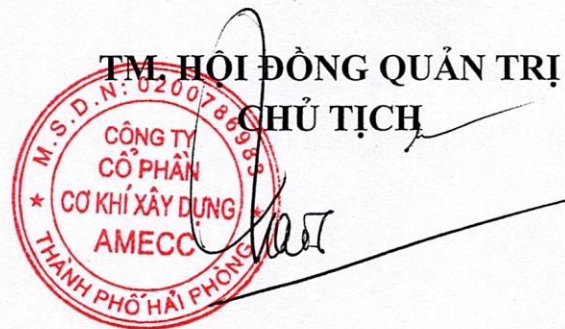 TM. HỘI ĐỒNG QUẢN TRỊ
CHỦ TỊCH
M.S.D.N: 0200786983
CÔNG TY
CỔ PHẦN
CƠ KHÍ XÂY DỰNG
AMECC
THÀNH PHỐ HẢI PHÒNG